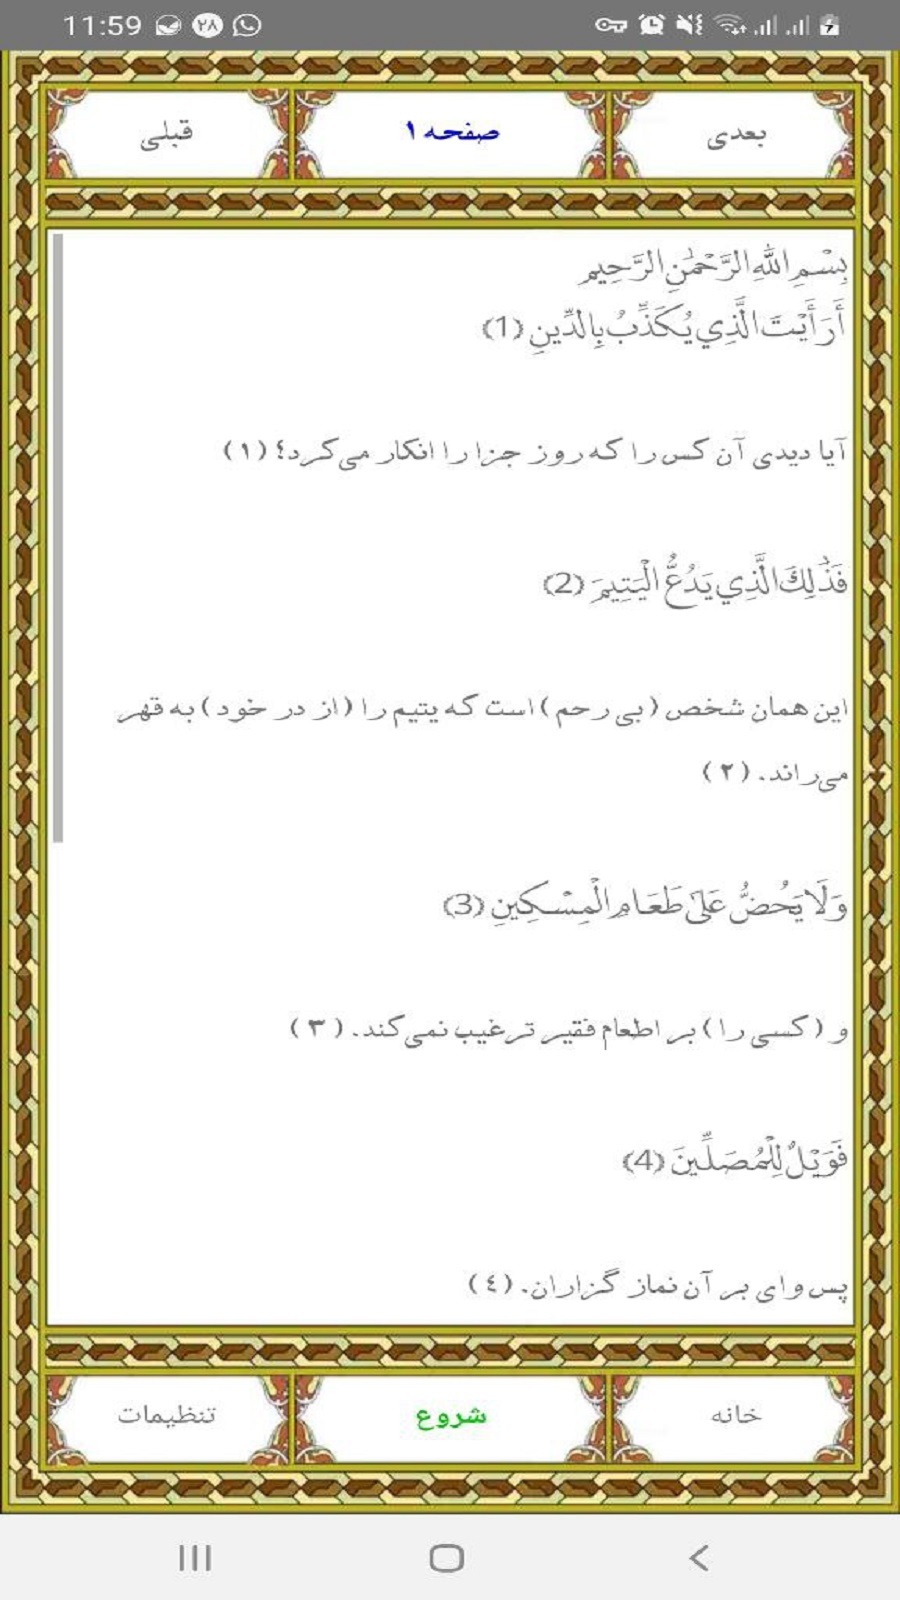 11:59 ۲۸
بعدی
صفحه ۱
قبلی
بِسْمِ اللَّهِ الرَّحْمَٰنِ الرَّحِيمِ
أَرَأَيْتَ الَّذِي يُكَذِّبُ بِالدِّينِ (1)
آیا دیدی آن کس را که روز جزا را انکار می‌کرد؟ (۱)
فَذَٰلِكَ الَّذِي يَدُعُّ الْيَتِيمَ (2)
این همان شخص (بی رحم) است که یتیم را (از در خود) به قهر
می‌راند. (۲)
وَلَا يَحُضُّ عَلَىٰ طَعَامِ الْمِسْكِينِ (3)
و (کسی را) بر اطعام فقیر ترغیب نمی‌کند. (۳)
فَوَيْلٌ لِلْمُصَلِّينَ (4)
پس وای بر آن نماز گزاران. (٤)
خانه
شروع
تنظیمات